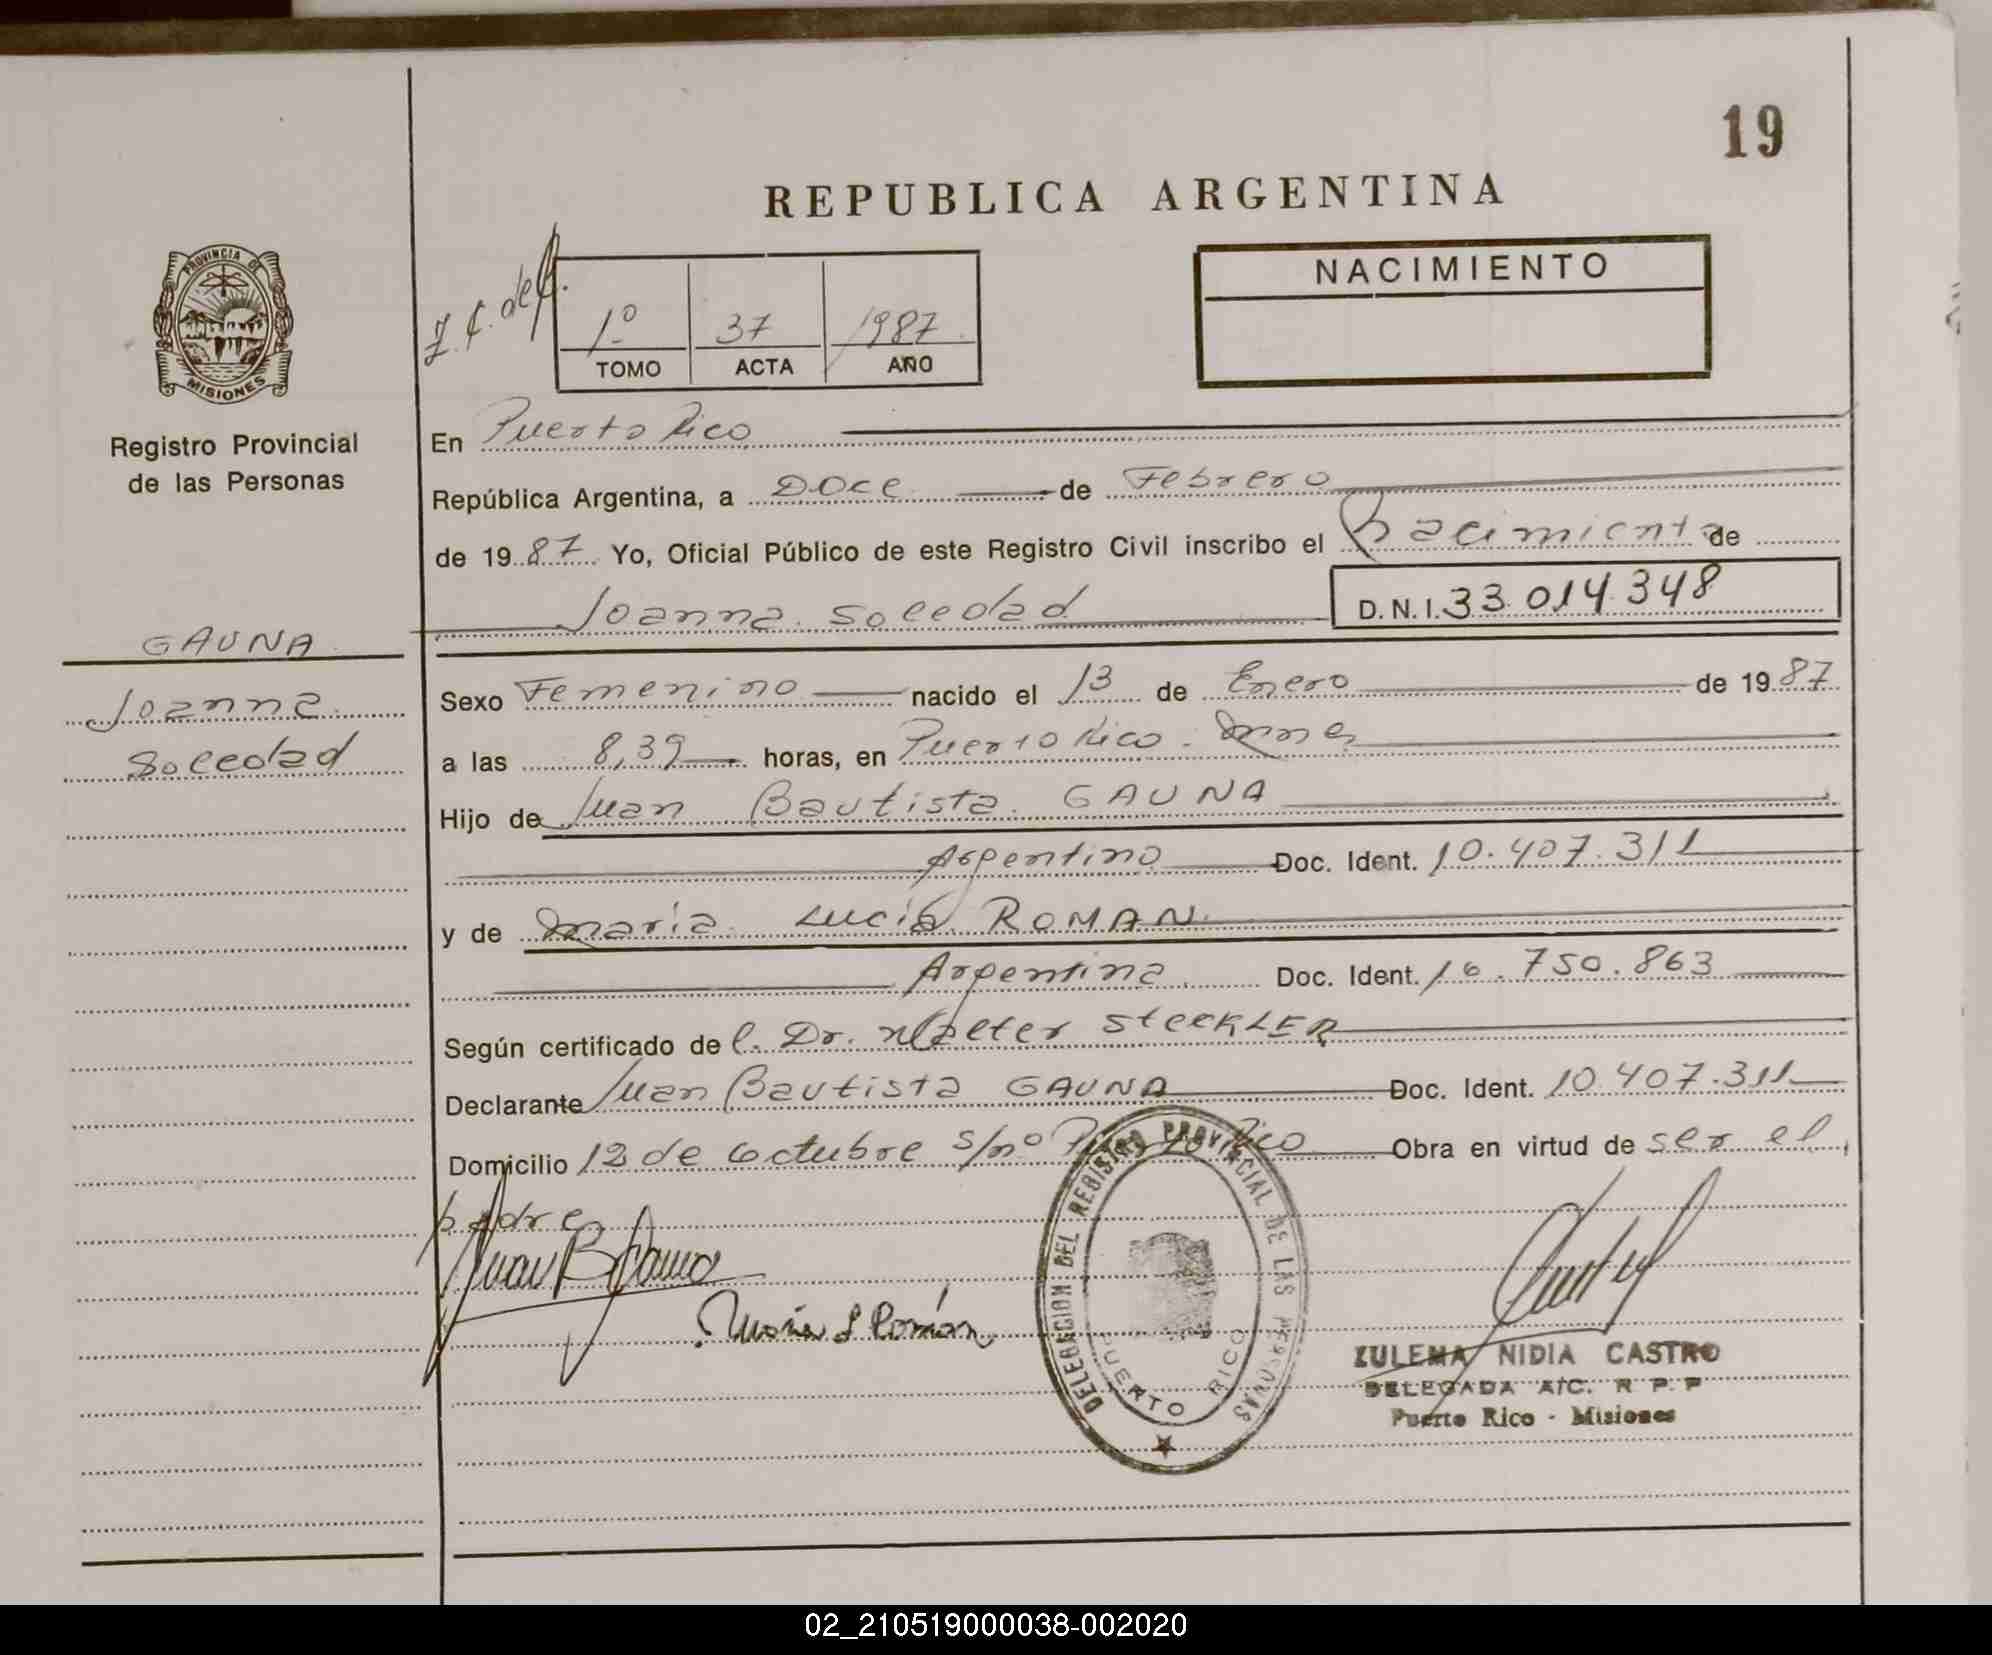 19
REPUBLICA ARGENTINA
PROVINCIA DE
MISIONES
Registro Provincial
de las Personas
GAUNA
Joanna
Soledad
1º 37 1987
TOMO ACTA AÑO
NACIMIENTO
En Puerto Rico
República Argentina, a Doce de Febrero
de 1987 Yo, Oficial Público de este Registro Civil inscribo el nacimiento de
Joanna Soledad D.N.I. 33 014 348
Sexo Femenino nacido el 13 de Enero de 1987
a las 8,39 horas, en Puerto Rico. Mnes
Hijo de Juan Bautista GAUNA
Argentino Doc. Ident. 10.407.311
y de María Lucía ROMAN
Argentina Doc. Ident. 16.750.863
Según certificado de l. Dr. Walter STECKLER
Declarante Juan Bautista GAUNA Doc. Ident. 10.407.311
Domicilio 12 de octubre s/nº Puerto Rico Obra en virtud de ser el
padre
Juan B Gauna
María L Román
DELEGACION DEL REGISTRO PROVINCIAL DE LAS PERSONAS
PUERTO RICO
ZULEMA NIDIA CASTRO
DELEGADA A/C. R P. P
Puerto Rico - Misiones
02_210519000038-002020